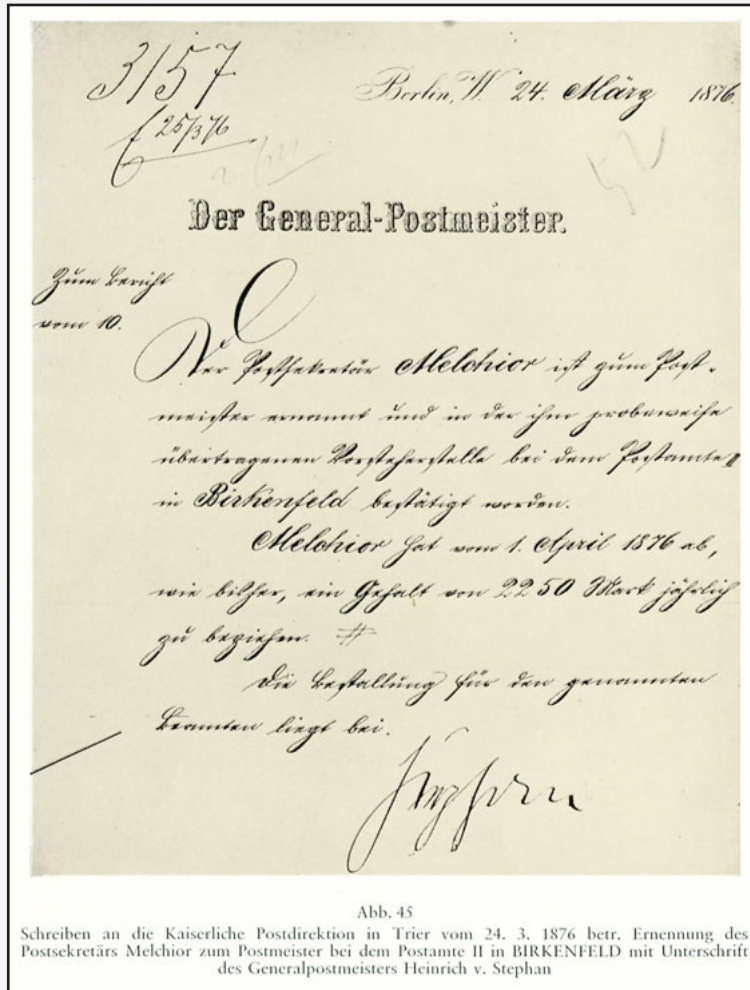 3157
25/3 76
Berlin, W. 24. März 1876.
Der General-Postmeister.
Zum Bericht
vom 10.
Der Postsekretär Melchior ist zum Post-
meister ernannt und in der ihm probeweise
übertragenen Vorsteherstelle bei dem Postamte II
in Birkenfeld bestätigt worden.
Melchior hat vom 1. April 1876 ab,
wie bisher, ein Gehalt von 2250 Mark jährlich
zu beziehen.
Die Bestallung für den genannten
Beamten liegt bei.
Stephan
Abb. 45
Schreiben an die Kaiserliche Postdirektion in Trier vom 24. 3. 1876 betr. Ernennung des
Postsekretärs Melchior zum Postmeister bei dem Postamte II in BIRKENFELD mit Unterschrift
des Generalpostmeisters Heinrich v. Stephan